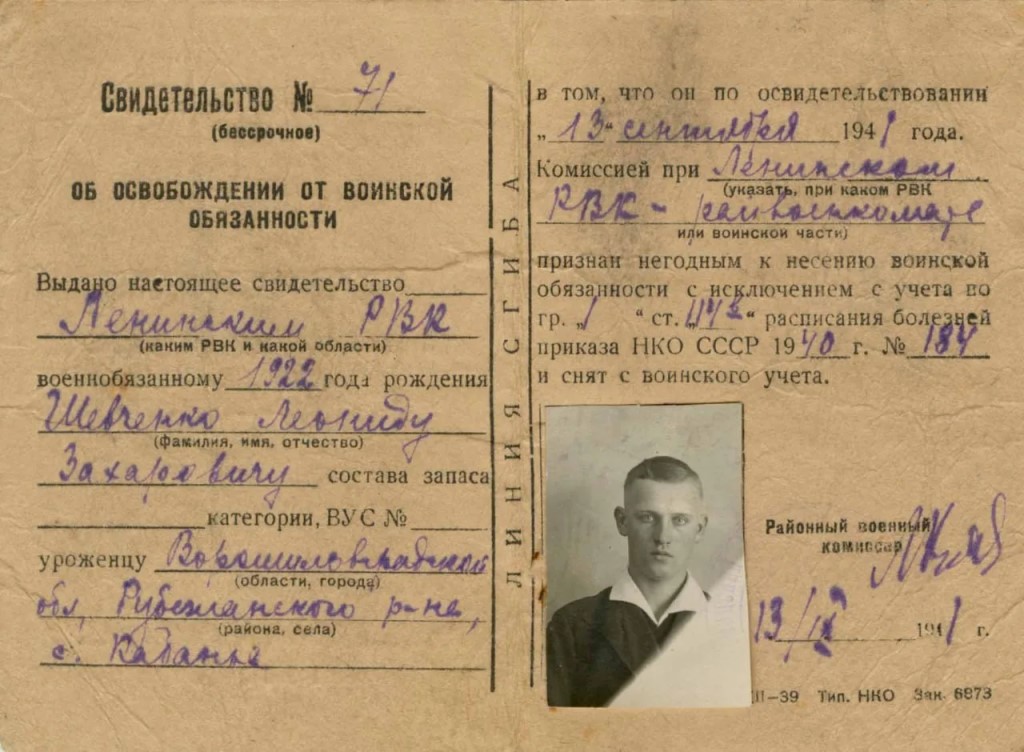 Свидетельство № 71
(бессрочное)
ОБ ОСВОБОЖДЕНИИ ОТ ВОИНСКОЙ
ОБЯЗАННОСТИ
Выдано настоящее свидетельство
Ленинским РВК
(каким РВК и какой области)
военнобязанному 1922 года рождения
Шевченко Леониду
(фамилия, имя, отчество)
Захаровичу состава запаса
категории, ВУС №
уроженцу Ворошиловградской
(области, города)
обл, Рубежанского р-на,
(района, села)
с. Кабанье
ЛИНИЯ СГИБА
в том, что он по освидетельствовании
„13“ сентября 1941 года.
Комиссией при Ленинском
(указать, при каком РВК
РВК - райвоенкомате
или воинской части)
признан негодным к несению воинской
обязанности с исключением с учета по
гр. „1“ ст. „114“ расписания болезней
приказа НКО СССР 1940 г. № 184
и снят с воинского учета.
Районный военный
комиссар
13/IX 1941 г.
III—39 Тип. НКО Зак. 6873